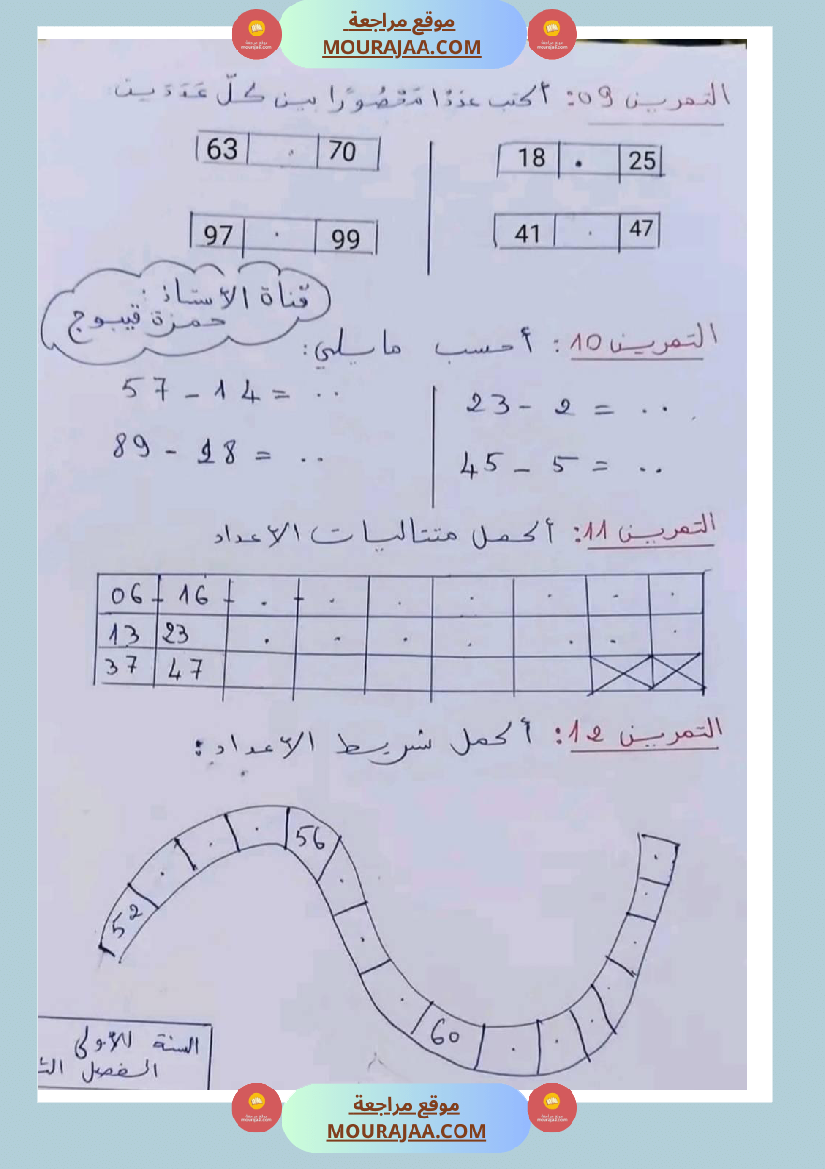 موقع مراجعة
MOURAJAA.COM
التمرين 09: أكتب عددًا مَحْصُورًا بين كلّ عَدَدَين
63 . 70
18 . 25
97 . 99
41 . 47
قناة الأستاذ:
حمزة قيبوج
التمرين 10: أحسب ما يلي:
57 - 14 = ..
23 - 2 = ..
89 - 18 = ..
45 - 5 = ..
التمرين 11: أكمل متتاليات الأعداد
06 16 . . . . . . .
13 23 . . . . . . .
37 47
التمرين 12: أكمل شريط الأعداد:
52 . . . 56 . . . 60 . . . . . . .
السنة الأولى
الفصل
موقع مراجعة
MOURAJAA.COM